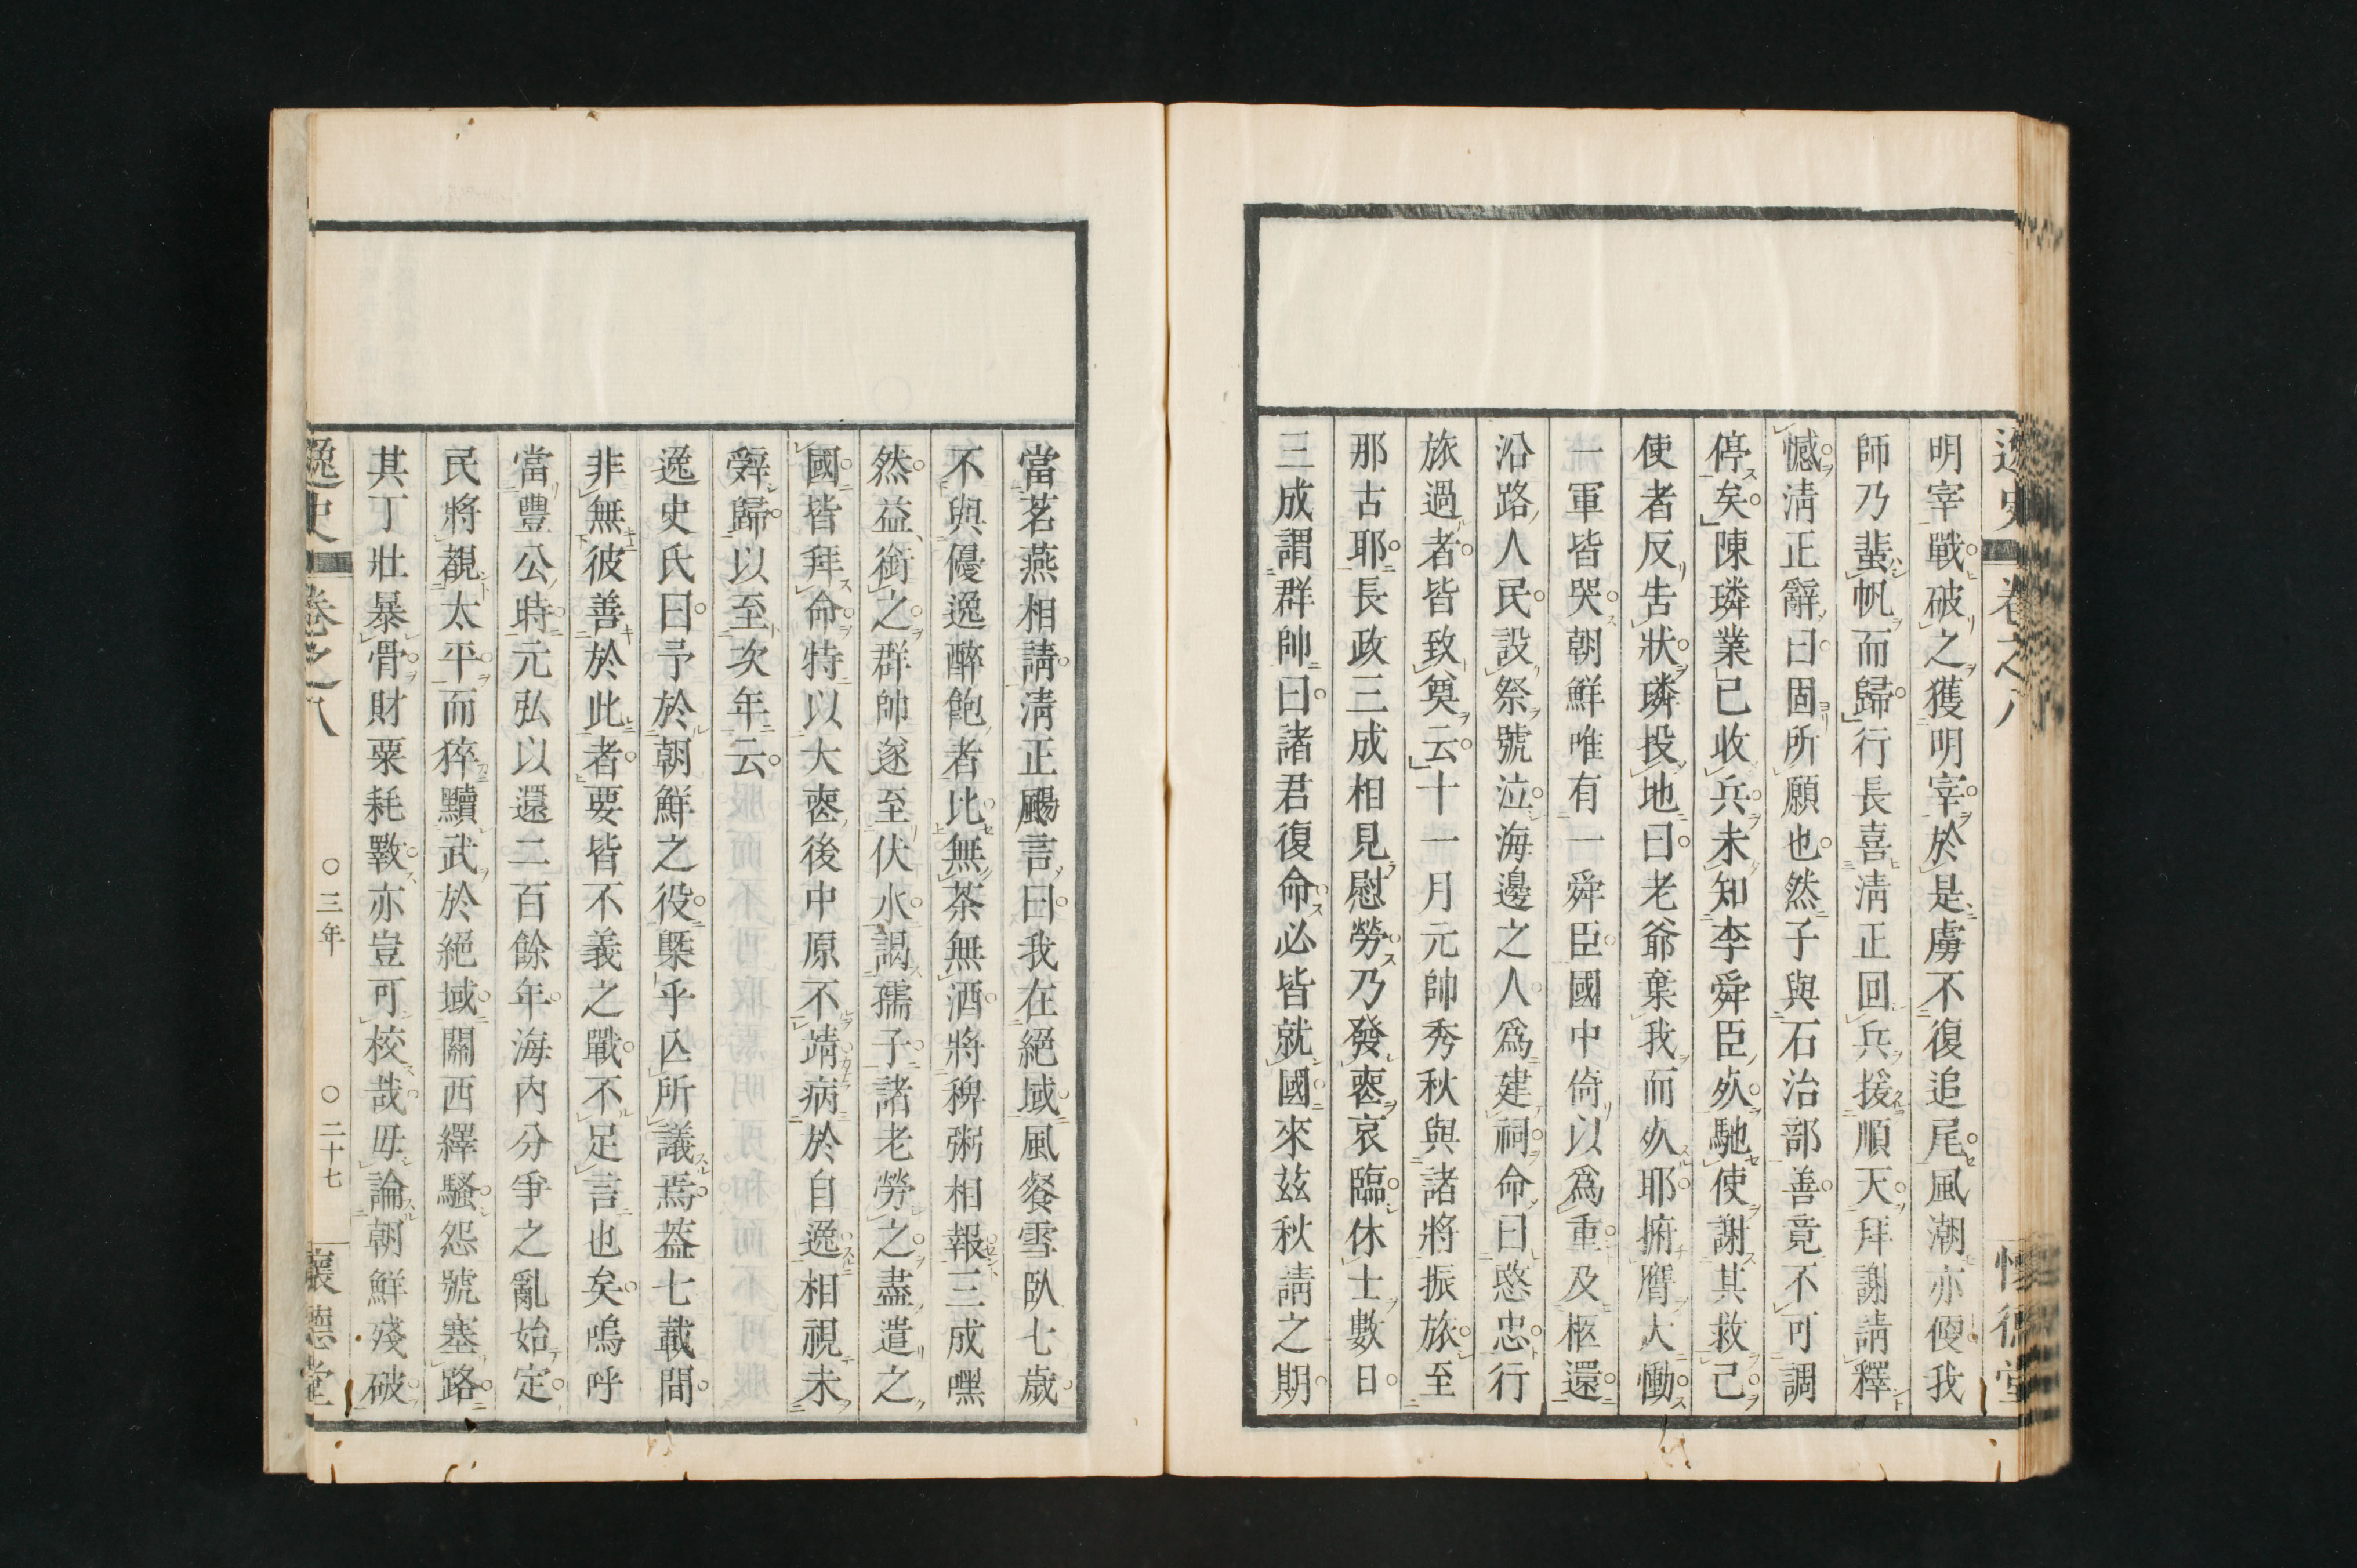 明宰戰破之獲明宰於是虜不復追尾風潮亦便我
師乃蜚帆而歸行長喜淸正回兵援順天拜謝請釋
憾淸正辭曰固所願也然子與石治部善竟不可調
停矣陳璘業已收兵未知李舜臣死馳使謝其救己
使者反告狀璘投地曰老爺棄我而死耶拊膺大慟
一軍皆哭朝鮮唯有一舜臣國中倚以爲重及柩還
沿路人民設祭號泣海邊之人爲建祠命曰愍忠行
旅過者皆致奠云十一月元帥秀秋與諸將振旅至
那古耶長政三成相見慰勞乃發喪哀臨休士數日
三成謂群帥曰諸君復命必皆就國來茲秋請之期
當茗燕相請淸正颺言曰我在絕域風餐雪臥七歲
不與優逸醉飽者比無茶無酒將稗粥相報三成嘿
然益銜之群帥遂至伏水謁孺子諸老勞之盡遣之
國皆拜命特以大喪後中原不靖病於自逸相視未
辭歸以至次年云
逸史氏曰予於朝鮮之役槩乎亾所議焉葢七載間
非無彼善於此者要皆不義之戰不足言也矣嗚呼
當豐公時元弘以還二百餘年海內分爭之亂始定
民將覩太平而猝黷武於絕域關西繹騷怨號塞路
其丁壯暴骨財粟耗斁亦豈可校哉毋論朝鮮殘破
逸史 卷之八 ○三年 ○二十七 懷德堂